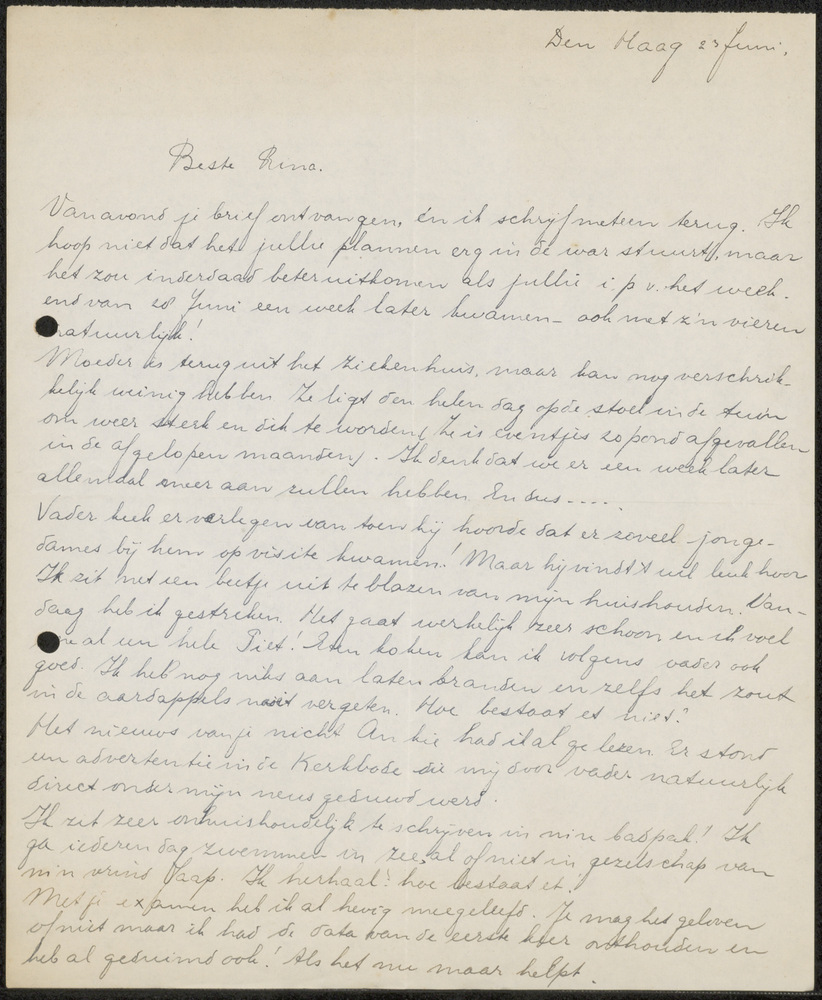 Den Haag 23 Juni.
Beste Rina.
Vanavond je brief ontvangen, én ik schrijf meteen terug. Ik
hoop niet dat het jullie plannen erg in de war stuurt, maar
het zou inderdaad beter uitkomen als jullie i.p.v. het week-
end van 28 Juni een week later kwamen – ook met z'n vieren
natuurlijk!
Moeder is terug uit het ziekenhuis, maar kan nog verschrik-
kelijk weinig hebben. Ze ligt den helen dag op de stoel in de tuin
om weer sterk en dik te worden (ze is eventjes 20 pond afgevallen
in de afgelopen maanden). Ik denk dat we er een week later
allemaal meer aan zullen hebben. En dus ....
Vader keek er verlegen van toen hij hoorde dat er zoveel jonge-
dames bij hem op visite kwamen! Maar hij vindt 't wel leuk hoor
Ik zit net een beetje uit te blazen van mijn huishouden. Van-
daag heb ik gestreken. Het gaat werkelijk zeer schoon en ik voel
me al een hele Piet! Eten koken kan ik volgens vader ook
goed. Ik heb nog niks aan laten branden en zelfs het zout
in de aardappels nooit vergeten. Hoe bestaat et niet?
Het nieuws van je nicht Ankie had ik al gelezen. Er stond
een advertentie in de Kerkbode die mij door vader natuurlijk
direct onder mijn neus geduwd werd.
Ik zit zeer onhuishoudelijk te schrijven in m'n badpak! Ik
ga iederen dag zwemmen in zee, al of niet in gezelschap van
m'n vriend Jaap. Ik herhaal: hoe bestaat et!
Met je examen heb ik al hevig meegeleefd. Je mag het geloven
of niet maar ik had de data van de eerste keer onthouden en
heb al geduimd ook! Als het nu maar helpt.